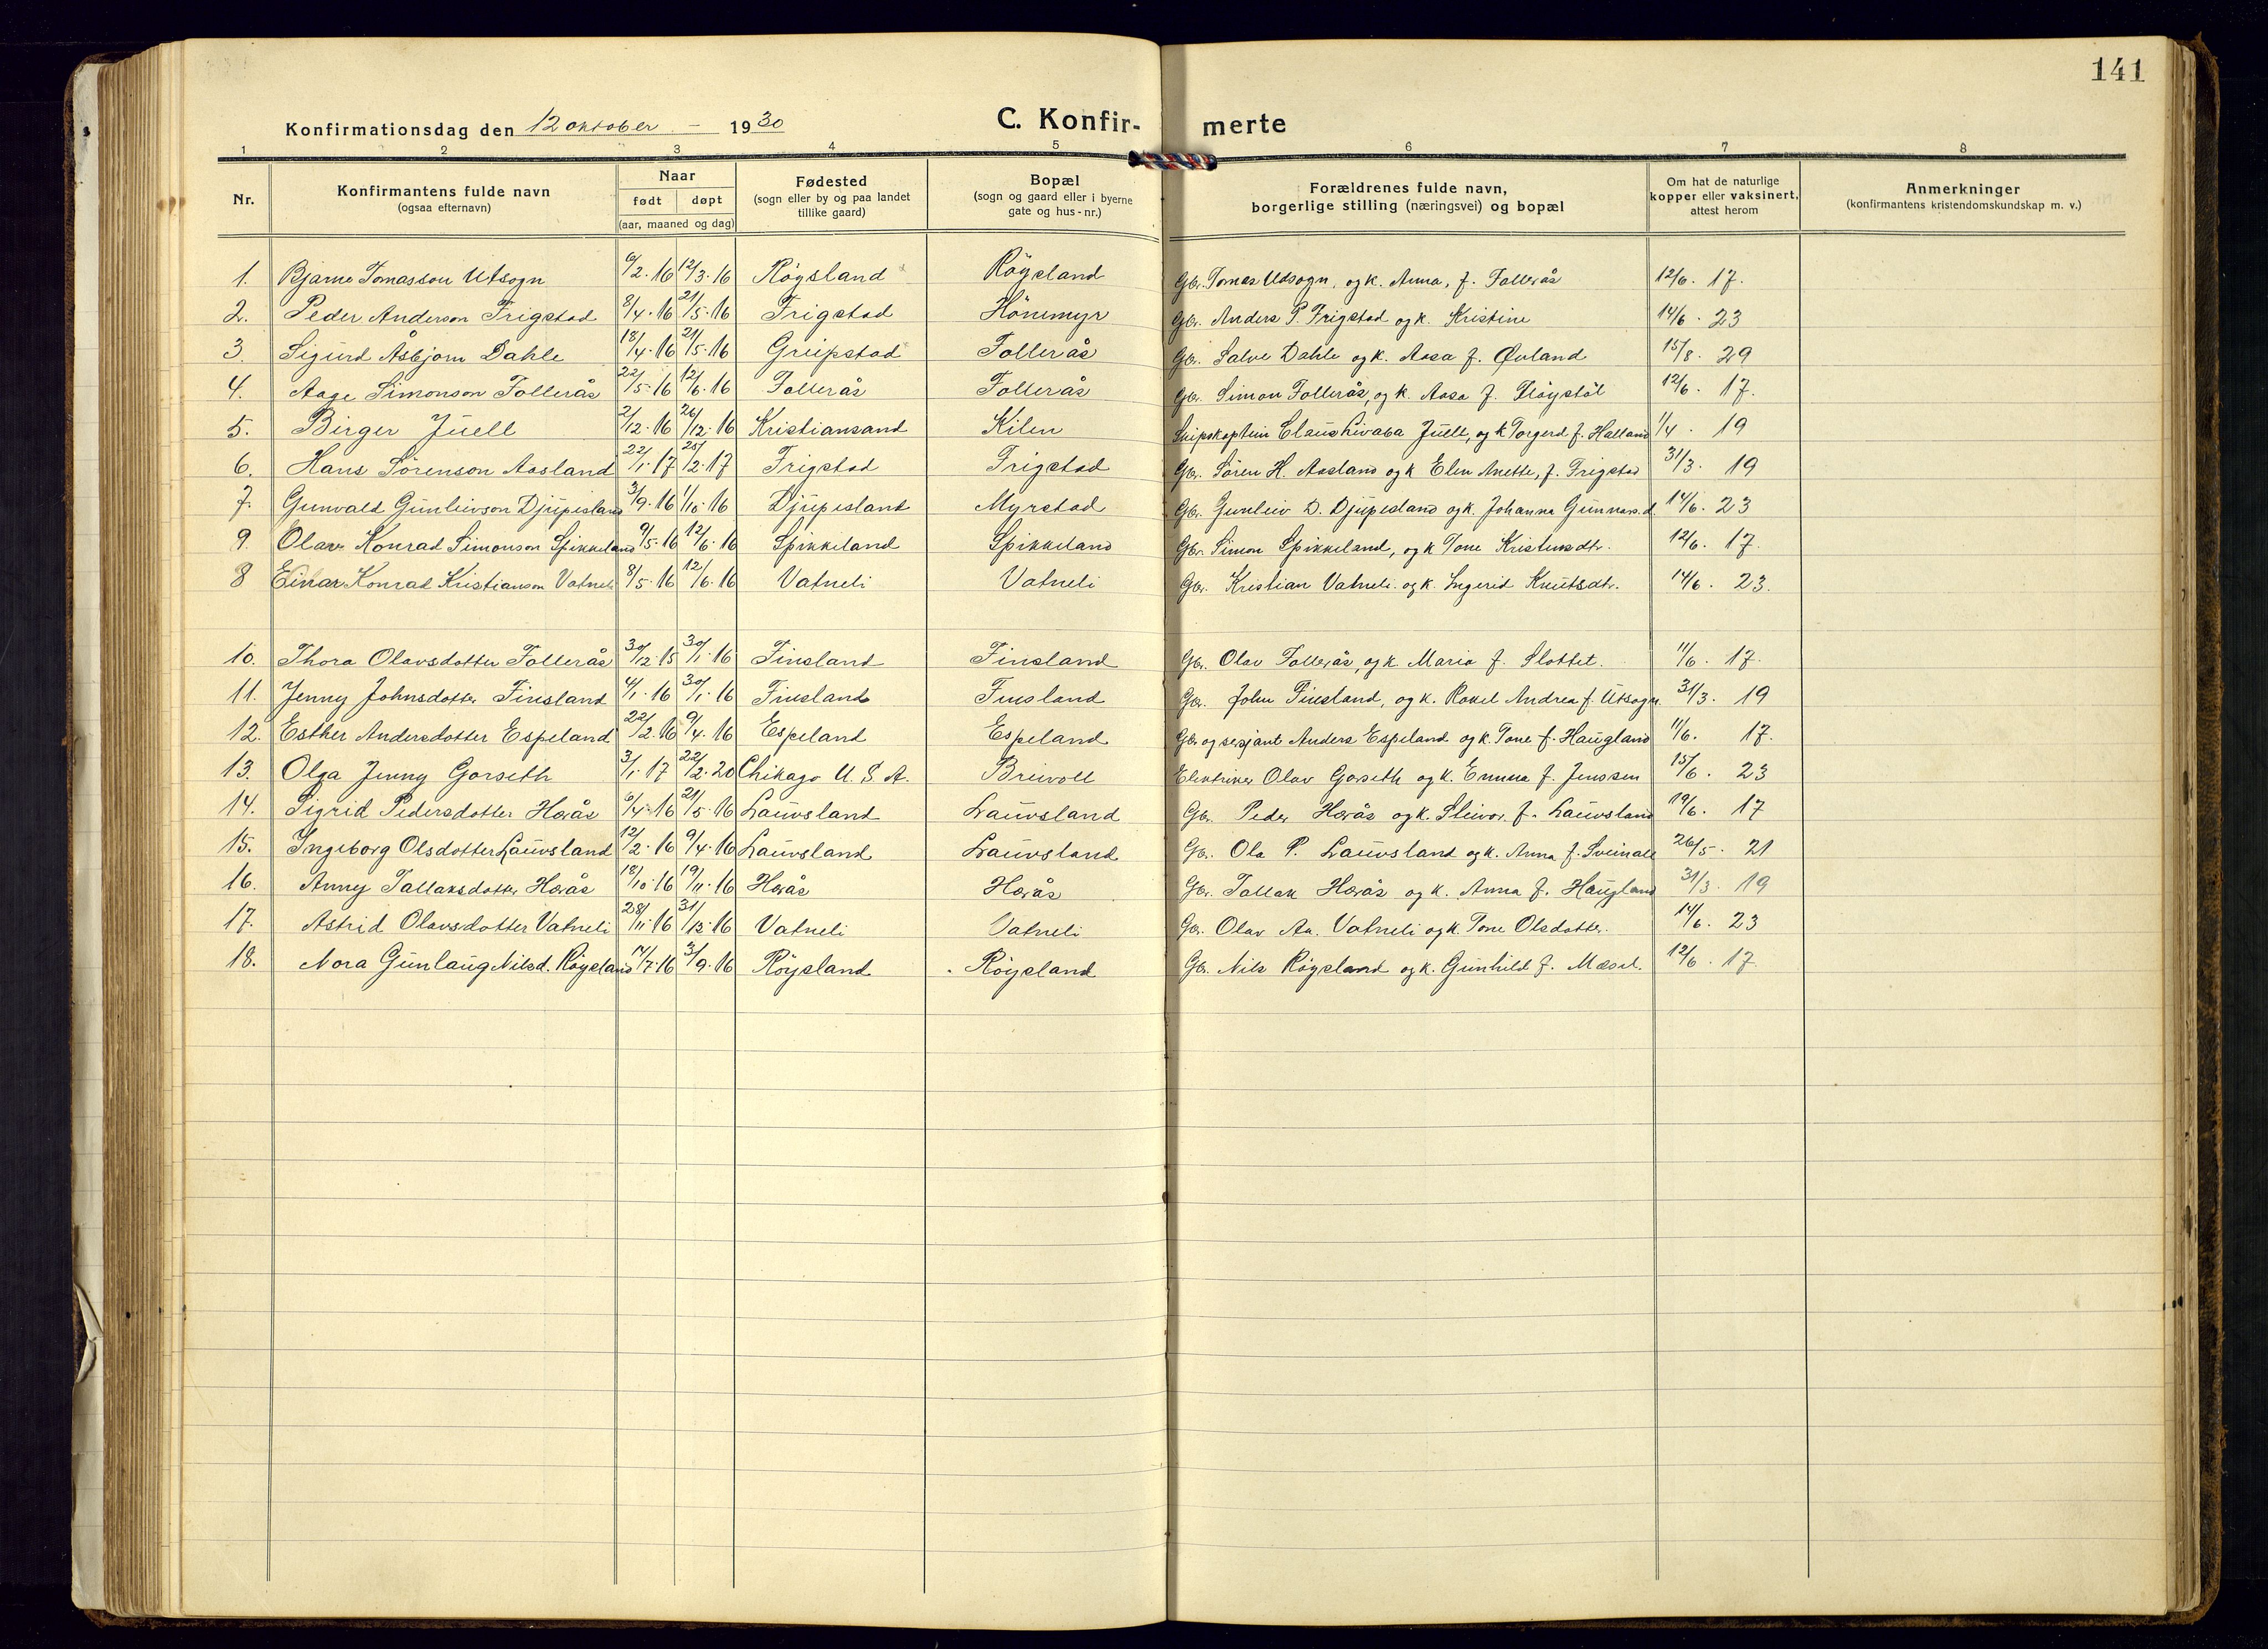 141
Konfirmationsdag den 12 oktober - 1930
C. Konfir- merte
1 2 3 4 5 6 7 8
Nr.
Konfirmantens fulde navn
(ogsaa efternavn)
Naar
født døpt
(aar, maaned og dag)
Fødested
(sogn eller by og paa landet
tillike gaard)
Bopæl
(sogn og gaard eller i byerne
gate og hus-nr.)
Forældrenes fulde navn,
borgerlige stilling (næringsvei) og bopæl
Om hat de naturlige
kopper eller vaksinert,
attest herom
Anmerkninger
(konfirmantens kristendomskundskap m. v.)
1. Bjarne Tomasson Utsogn 6/2·16 12/3·16 Röysland Röysland Gbr. Tomas Udsogn, og k. Anna, f. Follerås 12/6. 17.
2. Peder Anderson Frigstad 8/4·16 21/5·16 Frigstad Hönemyr Gbr. Anders P. Frigstad og k. Kristine 14/6. 23
3. Sigurd Åsbjorn Dahle 18/4·16 21/5·16 Greipstad Follerås Gbr. Salve Dahle og k. Aasa f. Øvland 15/8. 29
4. Aage Simonson Follerås 22/5·16 12/6·16 Follerås Follerås Gbr. Simon Follerås, og k. Aasa f. Flöystöl 12/6. 17.
5. Birger Juell 2/12·16 26/12·16 Kristiansand Kilen Skipskaptein Claus Juell, og k Torgerd f. Halland 1/4. 19
6. Hans Sörenson Aasland 22/1·17 25/2·17 Frigstad Frigstad Gbr. Sören H. Aasland og k Elen Anette, f. Frigstad 31/3. 19
7. Gunvald Gunleivson Djupesland 3/9·16 1/10·16 Djupesland Myrstad Gbr. Gunleiv D. Djupesland og k. Johanna Gunnars.d. 14/6. 23
9. Olav Konrad Simonson Spikkeland 9/5·16 12/6·16 Spikkeland Spikkeland Gbr. Simon Spikkeland, og k Tone Kristensdtr. 12/6. 17.
8 Einar Konrad Kristianson Vatneli 8/5·16 12/6·16 Vatneli Vatneli Gbr. Kristian Vatneli og k. Ingerid Knutsdtr. 14/6. 23.
10. Thora Olavsdotter Follerås 30/12·15 30/1·16 Finsland Finsland Gbr. Olav Follerås, og k. Maria f. Slottet. 11/6. 17.
11. Jenny Johnsdotter Finsland 4/1·16 30/1·16 Finsland Finsland Gbr. John Finsland, og k. Rakel Andrea f. Utsogn. 31/3. 19
12. Esther Andersdotter Espeland 22/2·16 9/4·16 Espeland Espeland Gbr og sersjant Anders Espeland og k. Tone f. Haugland 11/6. 17.
13. Olga Jenny Gorseth 3/1·17 22/2·20 Chikago U. S. A. Breivoll Elektriker Olav Gorseth og k. Emma f. Jenssen 15/6. 23
14. Sigrid Pedersdotter Hærås 6/4·16 21/5·16 Lauvsland Lauvsland Gbr. Peder Hærås og k. Sleivor f. Lauvsland 19/6. 17
15. Ingeborg Olsdotter Lauvsland 12/2·16 9/4·16 Lauvsland Lauvsland Gbr. Ola P. Lauvsland og k. Anna f. Sveinall 26/5. 21
16. Anny Tallaksdotter Hærås 18/10·16 19/11·16 Hærås Hærås Gbr. Tallak Hærås og k. Anna f. Haugland 31/3. 19
17. Astrid Olavsdotter Vatneli 28/11·16 31/12·16 Vatneli Vatneli Gbr. Olav Aa. Vatneli og k. Tone Olsdotter. 14/6. 23
18. Nora Gunlaug Nilsd. Röysland 14/7·16 3/9·16 Röysland Röysland Gbr. Nils Röysland og k. Gunhild f. Mæsel. 12/6. 17